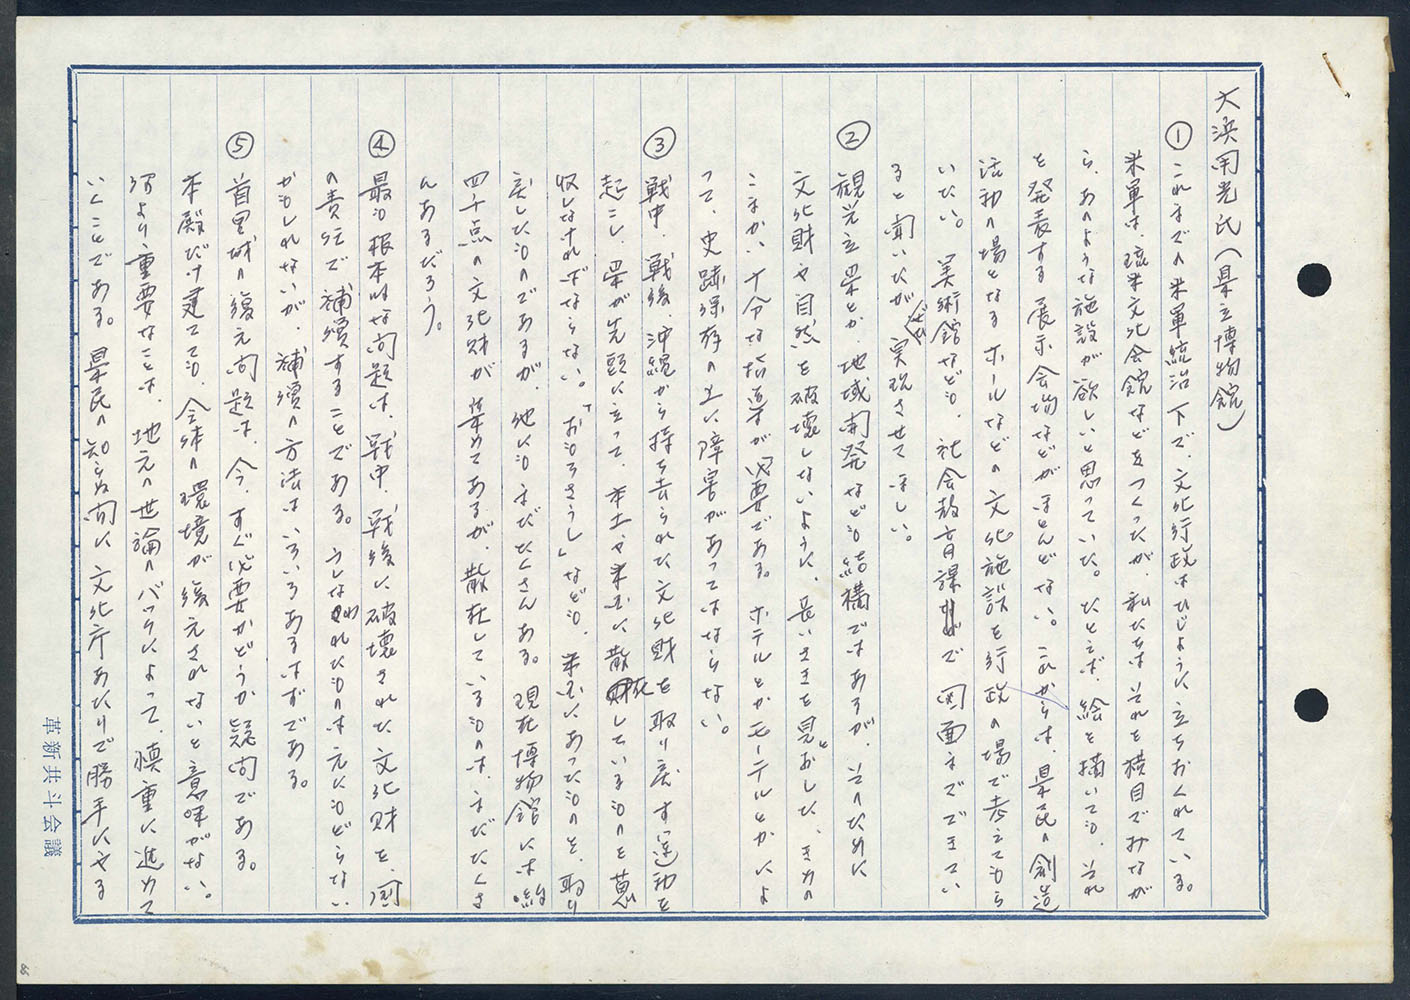 大浜用光氏(県立博物館)
① これまでの米軍統治下で、文化行政はひじように立ちおくれている。
米軍は、琉米文化会館などをつくつたが、私たちは、それを横目でみなが
ら、あのような施設が欲しいと思っていた。たとえば、絵を描いても、それ
を発表する展示会場などがほとんどない。これからは、県民の創造
活動の場となるホールなどの文化施設を行政の場で考えてもら
いたい。美術館なども、社会教育課がで図面までできてい
ると聞いたがぜひ実現させてほしい。
② 観光立県とか、地域開発なども結構ではあるが、そのために
文化財や自然を破壊しないように、長いさきを見とおした、きめの
こまかい十分な指導が必要である。ホテルとかモーテルとかによ
って、史跡保存の上に障害があってはならない。
③ 戦中、戦後、沖縄から持ち去られた文化財を取り戻す運動を
起こし、県が先頭に立って、本土や米国に散在しているものを蒐
収しなければならない。「おもろさうし」なども、米国にあったものを、取り
戻したものであるが、他にもまだたくさんある。現在博物館には約
四十点の文化財が集めてあるが、散在しているものは、まだたくさ
んあるだろう。
④ 最も根本的な問題は、戦中、戦後に破壊された文化財を、国
の責任で補償することである。うしなわれたものは元にもどらない
かもしれないが、補償の方法はいろいろあるはずである。
⑤ 首里城の復元問題は、今、すぐ必要かどうか疑問である。
本殿だけ建てても、全体の環境が復元されないと意味がない。
何より重要なことは、地元の世論のバックによって、慎重に進めて
いくことである。県民の知らぬ間に文化庁あたりで勝手にやる
革新共斗会議